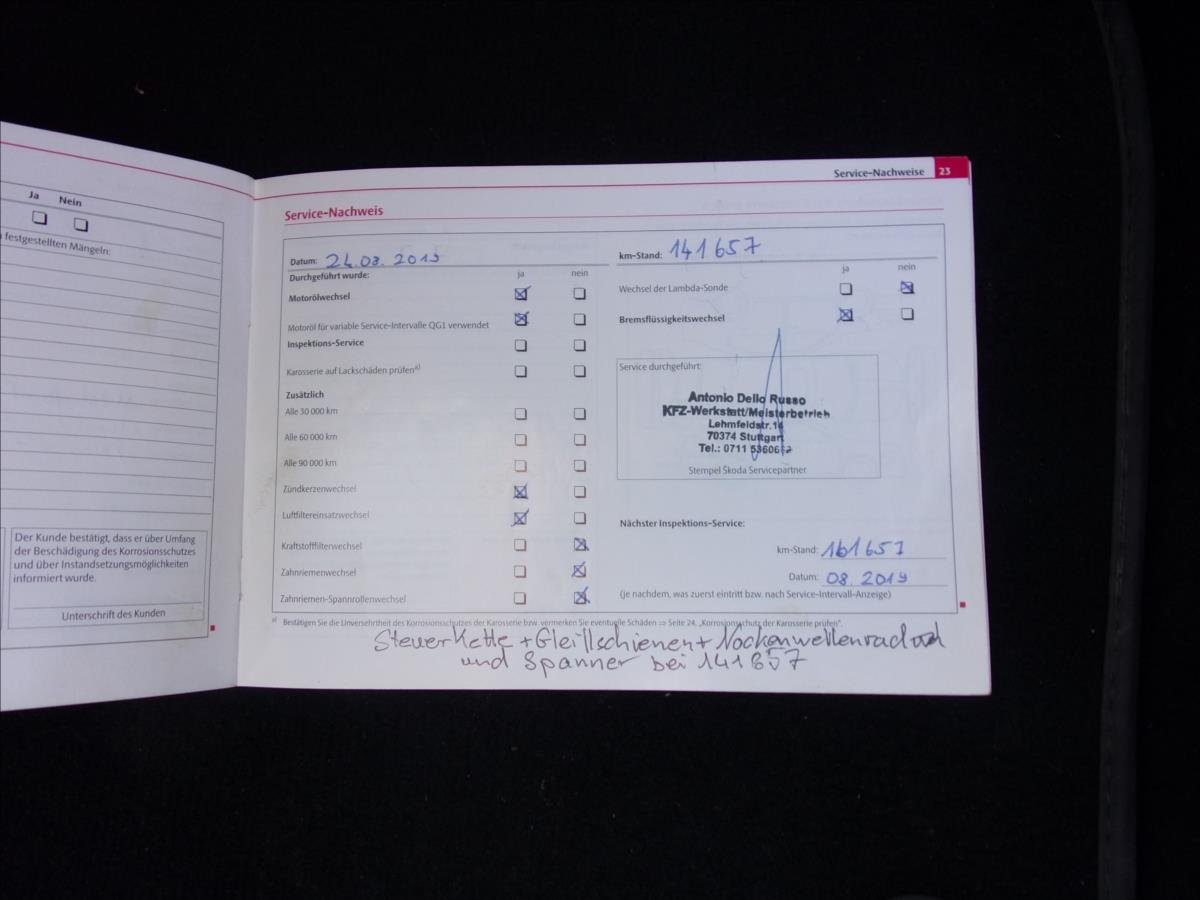 Ja Nein
festgestellten Mängeln:
Der Kunde bestätigt, dass er über Umfang
der Beschädigung des Korrosionsschutzes
und über Instandsetzungsmöglichkeiten
informiert wurde.
Unterschrift des Kunden
Service-Nachweise 23
Service-Nachweis
Datum:
Durchgeführt wurde: ja nein
Motorölwechsel
Motoröl für variable Service-Intervalle QG1 verwendet
Inspektions-Service
Karosserie auf Lackschäden prüfen a)
Zusätzlich
Alle 30 000 km
Alle 60 000 km
Alle 90 000 km
Zündkerzenwechsel
Luftfiltereinsatzwechsel
Kraftstofffilterwechsel
Zahnriemenwechsel
Zahnriemen-Spannrollenwechsel
km-Stand: 141657
ja nein
Wechsel der Lambda-Sonde
Bremsflüssigkeitswechsel
Service durchgeführt:
Antonio Dello Russo
KFZ-Werkstatt/Meisterbetrieb
Lehmfeldstr.14
70374 Stuttgart
Tel.: 0711
Stempel Škoda Servicepartner
Nächster Inspektions-Service:
km-Stand: 161657
Datum: 08. 2019
(je nachdem, was zuerst eintritt bzw. nach Service-Intervall-Anzeige)
a) Bestätigen Sie die Unversehrtheit des Korrosionsschutzes der Karosserie bzw. vermerken Sie eventuelle Schäden ⇒ Seite 24, „Korrosionsschutz der Karosserie prüfen".
Steuerkette + Gleitschienen + Nockenwellenrad
und Spanner bei 141657